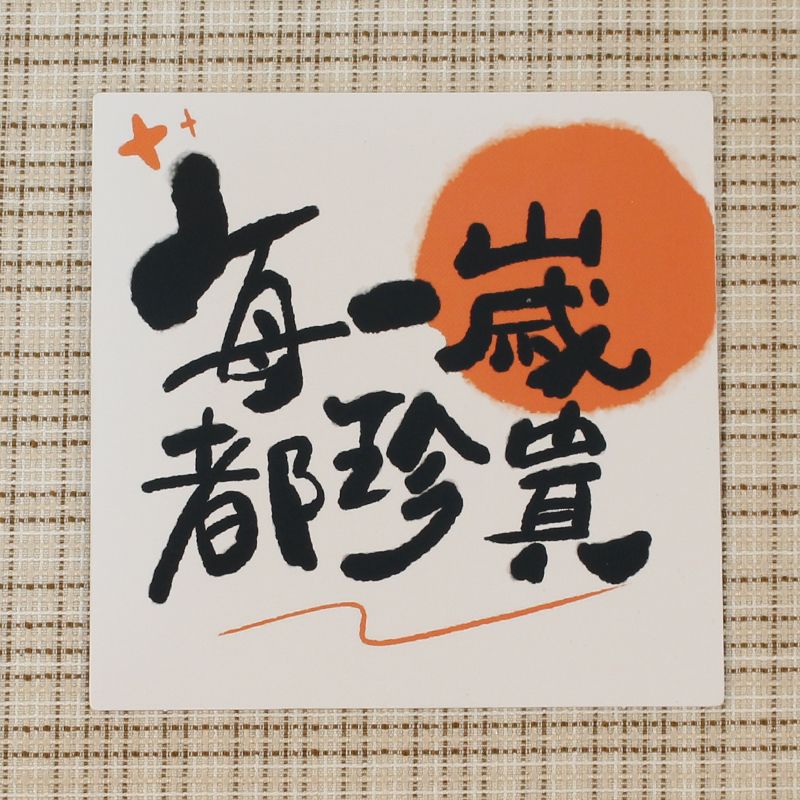 每一歲
都珍貴